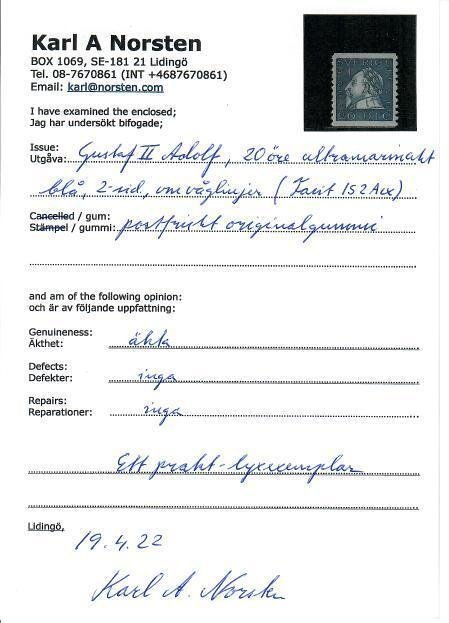 Karl A Norsten
BOX 1069, SE-181 21 Lidingö
Tel. 08-7670861 (INT +4687670861)
Email: karl@norsten.com
SVERIGE
20 ÖRE
I have examined the enclosed;
Jag har undersökt bifogade;
Issue:
Utgåva: Gustaf II Adolf, 20 öre ultramarinakt
blå, 2-sid, vm våglinjer (Facit 152Acx)
Cancelled / gum:
Stämpel / gummi: postfriskt originalgummi
and am of the following opinion:
och är av följande uppfattning:
Genuineness:
Äkthet: äkta
Defects:
Defekter: inga
Repairs:
Reparationer: inga
Ett prakt-lyxexemplar
Lidingö,
19.4.22
Karl A. Norsten